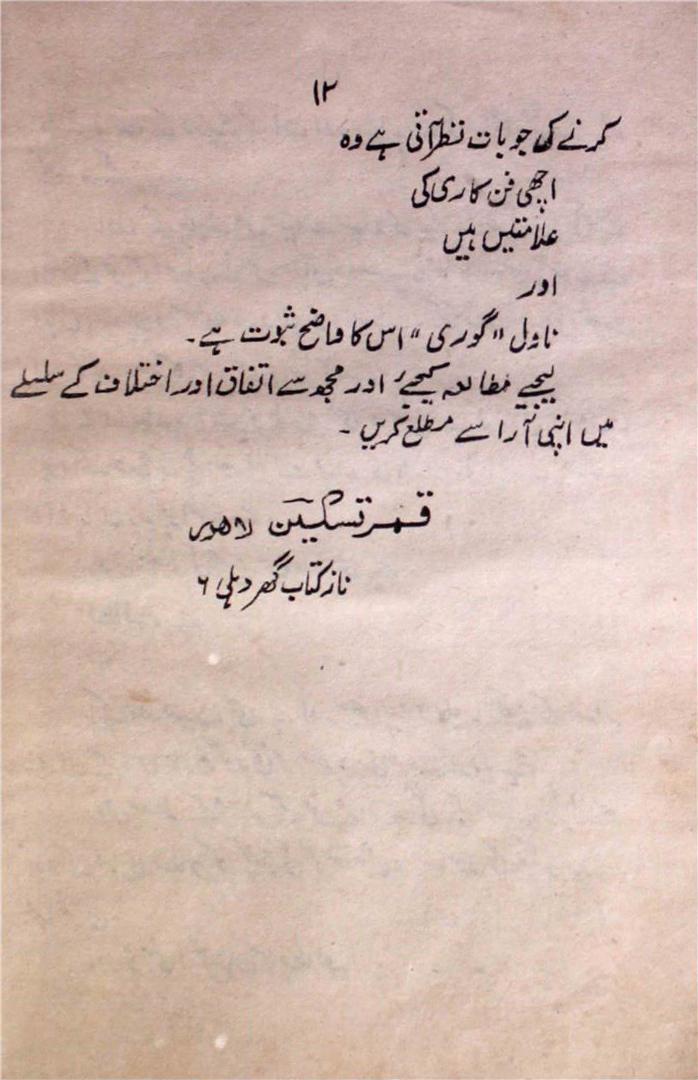 ۱۲
کرنے کی جو بات نظر آتی ہے وہ
اچھی فن کاری کی
علامتیں ہیں
اور
ناول "گوری" اس کا واضح ثبوت ہے۔
لیجیے مطالعہ کیجیے اور مجھ سے اتفاق اور اختلاف کے سلسلے
میں اپنی آرا سے مطلع کریں ۔
قمر تسکین لاہور
ناز کتاب گھر دہلی ۶